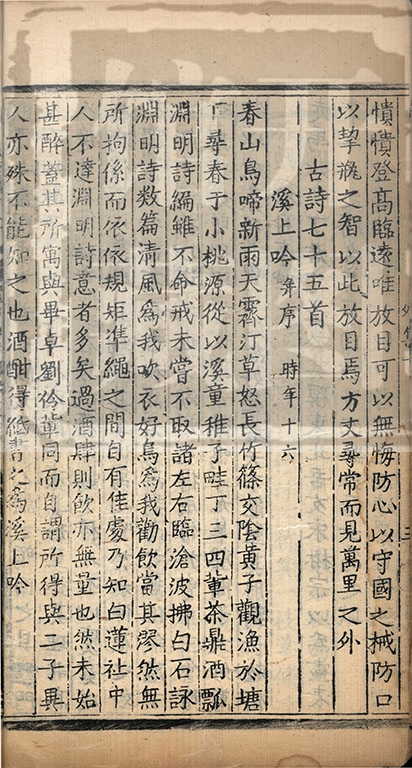 憒憒登高臨遠唯放目可以無悔防心以守國之械防口
以挈瓶之智以此放目焉方丈尋常而見萬里之外
古詩七十五首
溪上吟 并序 時年十六
春山鳥啼新雨天霽汀草怒長竹篠交陰黃子觀漁於塘
下尋春于小桃源從以溪童稚子畦丁三四輩茶鼎酒瓢
淵明詩編雖不命戒未嘗不取諸左右臨滄波拂白石詠
淵明詩數篇清風為我吹衣好鳥為我勸飲當其漻然無
所拘係而依依規矩準繩之間自有佳處乃知白蓮社中
人不達淵明詩意者多矣過酒肆則飲亦無量也然未始
甚醉蓋其所寓與畢卓劉伶輩同而自謂所得與二子異
人亦殊不能知之也酒酣得紙書之為溪上吟